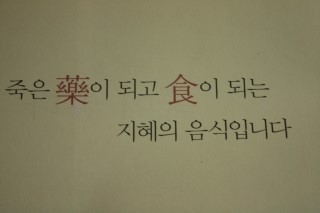 죽은 藥이 되고 食이 되는
지혜의 음식입니다